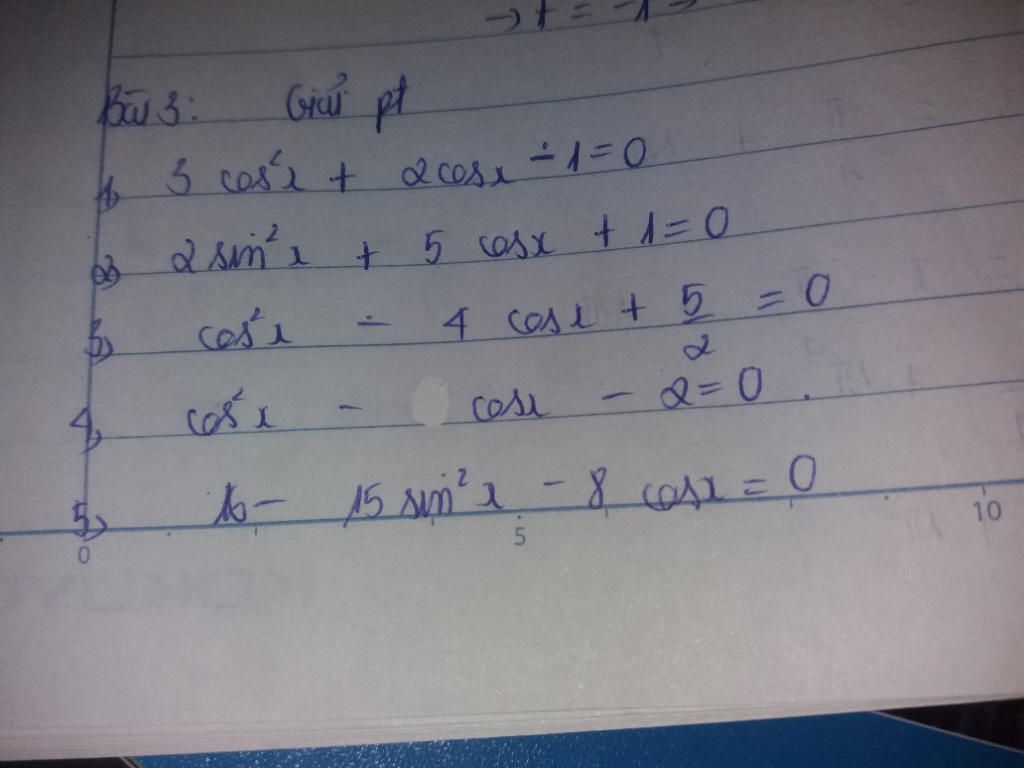 → t = -1 →
Bài 3: Giải pt
1) 3 cos²x + 2cosx - 1 = 0
2) 2 sin²x + 5 cosx + 1 = 0
3) cos²x - 4 cosx + 5/2 = 0
4) cos²x - cosx - 2 = 0.
5) 16 - 15 sin²x - 8 cosx = 0
0 5 10